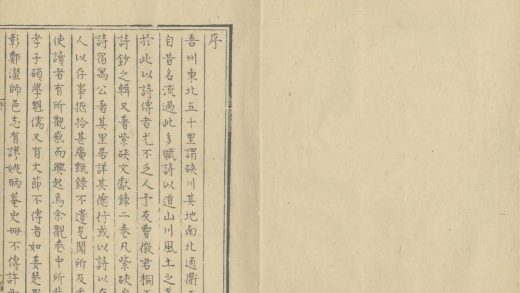 序
吾州東北五十里謂硤川其地南北通衢
自昔名流過此多賦詩以道山川風土之
於此以詩傳者尤不乏人予友曹徵君桐
詩鈔之輯又著紫硤文獻錄二卷凡紫硤
詩宿寓公者其里居詳其德行或以詩以存
人以存事摭拾甚廣甄錄不遺見聞所及
使讀者有所觀感而興起焉余觀卷中所
孝子碩學魁儒又有大節不傳者如姜楚
彰鄭澄師邑志有謬姚暘菴史冊不傳許
序